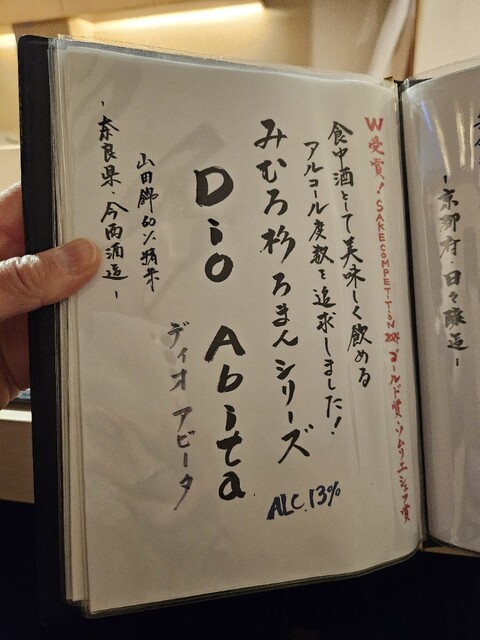 W受賞！SAKE COMPETITION 2024 ゴールド賞・ソムリエシェフ賞
食中酒として美味しく飲める
アルコール度数を追求しました！
みむろ杉 ろまんシリーズ
ALC.13%
Dio Abita
ディオ アビータ
山田錦60%精米
-奈良県・今西酒造-
-京都府・日々醸造-